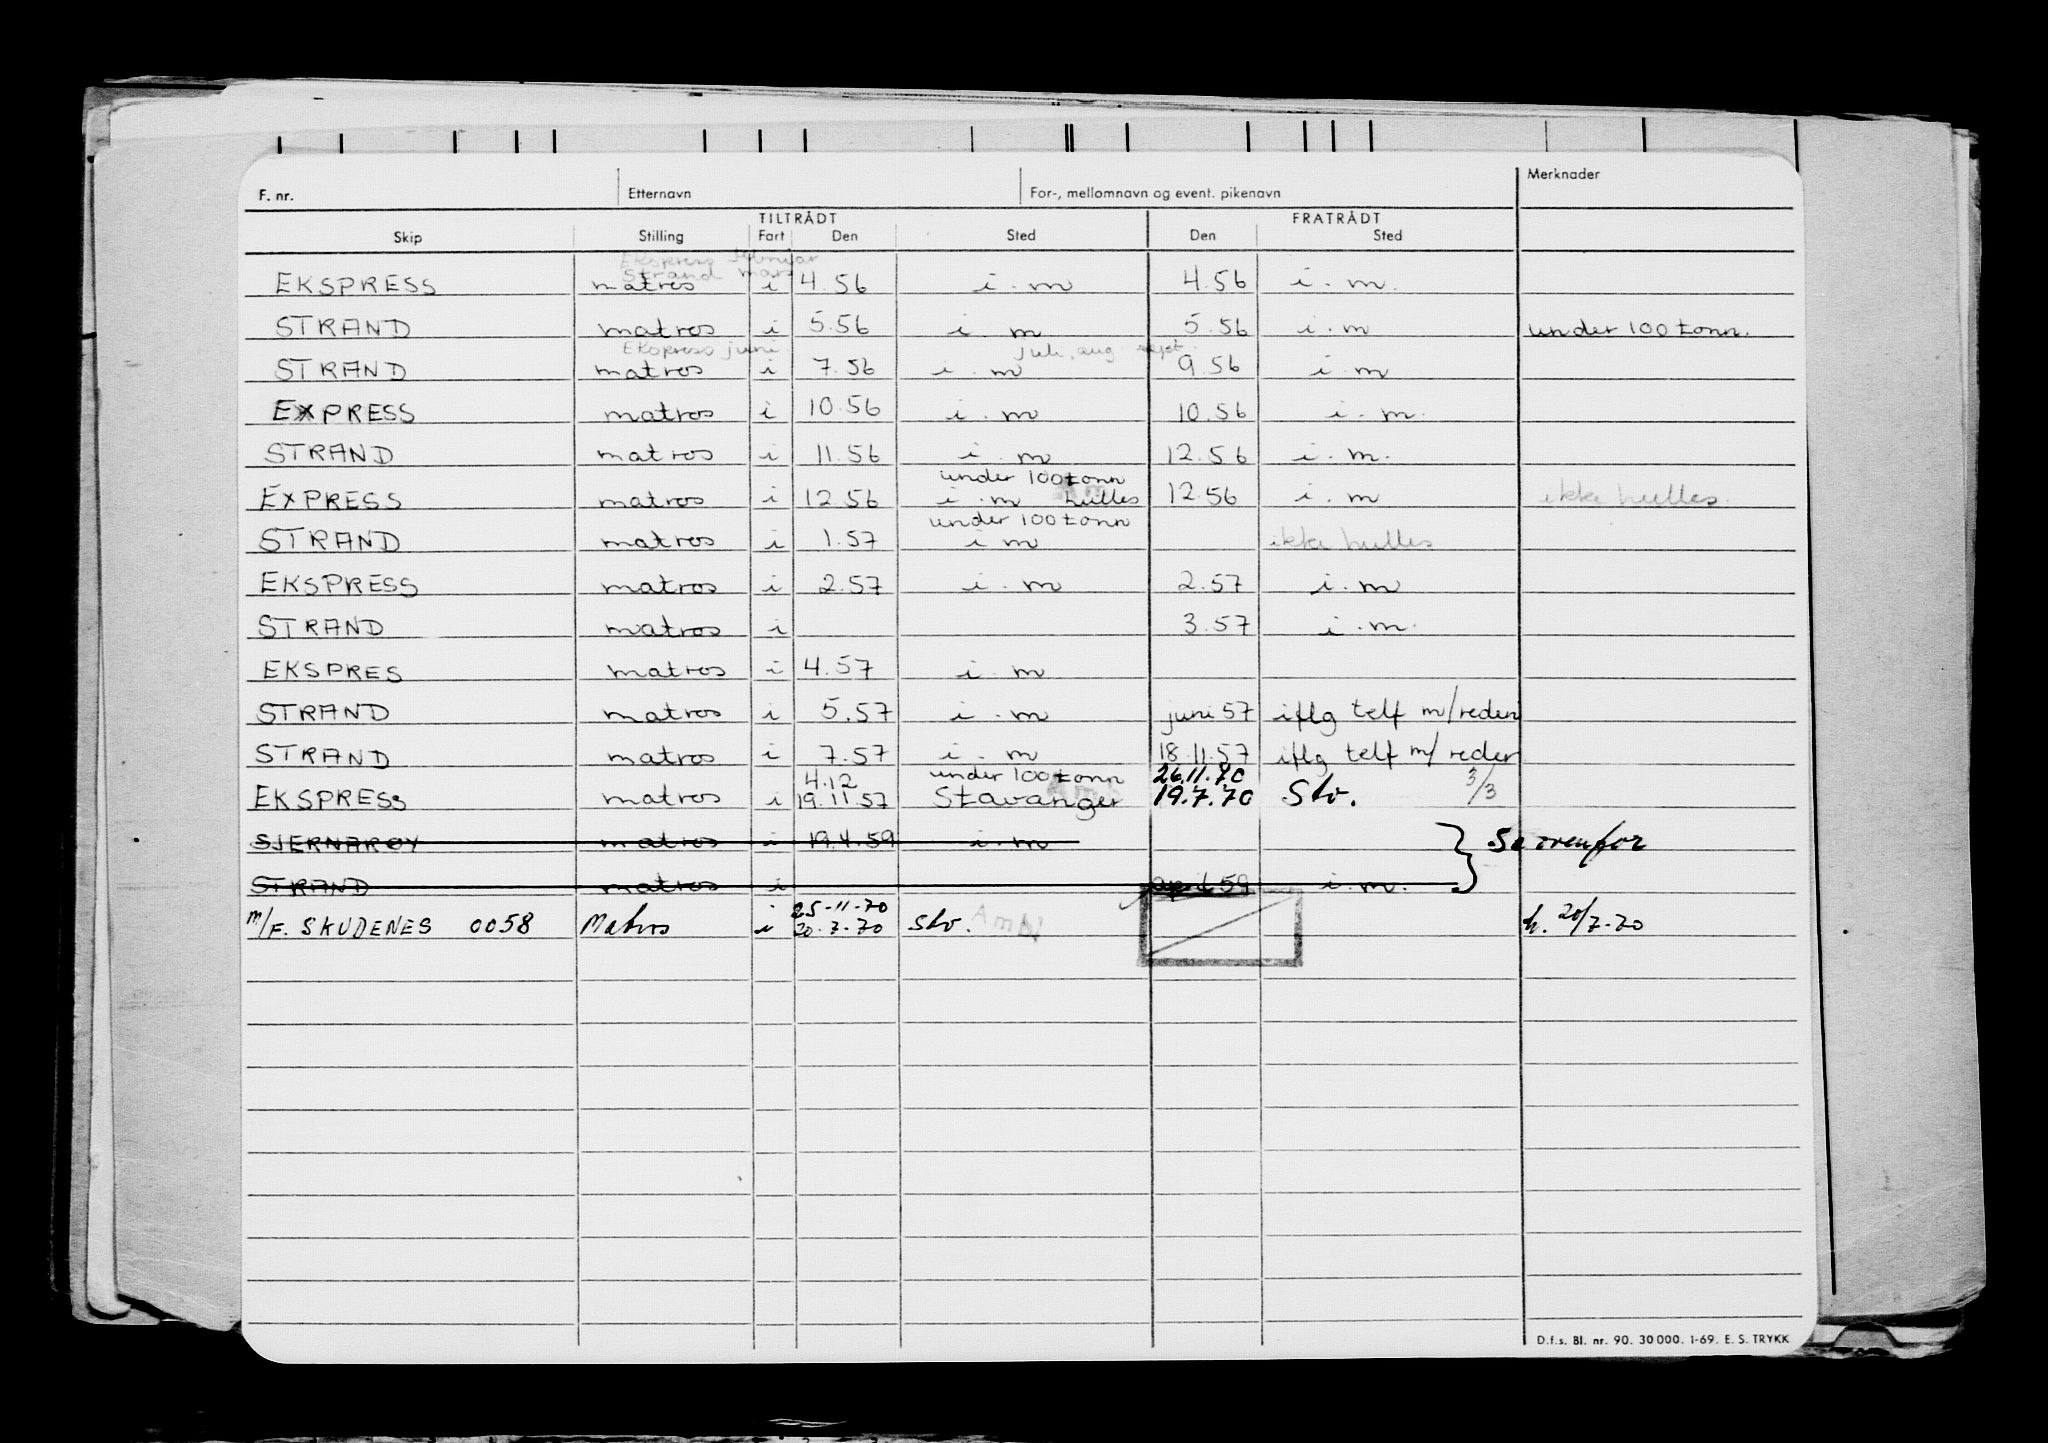 F. nr. Etternavn For-, mellomnavn og event. pikenavn Merknader
TILTRÅDT FRATRÅDT
Skip Stilling Fart Den Sted Den Sted
Ekspress februar
Strand mars
EKSPRESS matros i 4.56 i.m 4.56 i.m.
STRAND matros i 5.56 i m 5.56 i.m under 100 tonn.
Ekspress juni juli, aug. sept.
STRAND matros i 7.56 i m 9.56 i m
EXPRESS matros i 10.56 i.m 10.56 i.m.
STRAND matros i 11.56 i.m 12.56 i.m.
under 100 tonn
EXPRESS matros i 12.56 i.m hulles 12.56 i.m ikke hulles.
under 100 tonn
STRAND matros i 1.57 i m ikke hulles
EKSPRESS matros i 2.57 i.m 2.57 i.m
STRAND matros i 3.57 i.m.
EKSPRES matros i 4.57 i.m
STRAND matros i 5.57 i.m juni 57 iflg telf m/reden
STRAND matros i 7.57 i.m 18.11.57 iflg telf m/ reder
4.12 under 100 tonn 26.11.70 3/3
EKSPRESS matros i 19.11.57 Stavanger 19.7.70 Stv.
SJERNARØY matros i 19.4.59 i.m Se ovenfor
STRAND matros i april 59 i.m.
25-11-70
m/F. SKUDENES 0058 Matros i 20.7-70 Stv. h. 20/7-70
D.f.s. Bl. nr. 90. 30 000. 1-69. E. S. TRYKK